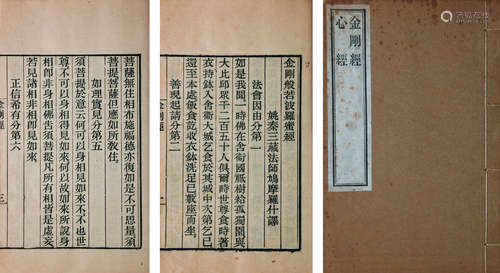 金剛經
心經
金剛般若波羅蜜經
姚秦三藏法師鳩摩羅什譯
法會因由分第一
如是我聞一時佛在舍衞國祇樹給孤獨園與
大比邱眾千二百五十人俱爾時世尊食時著
衣持鉢入舍衞大城乞食於其城中次第乞已
還至本處飯食訖收衣鉢洗足已敷座而坐
善現起請分第二
金剛經
菩薩無住相布施福德亦復如是不可思量須
菩提菩薩但應如所教住
如理實見分第五
須菩提於意云何可以身相見如來不不也世
尊不可以身相得見如來何以故如來所說身
相即非身相佛告須菩提凡所有相皆是虛妄
若見諸相非相即見如來
正信希有分第六
金剛經
三